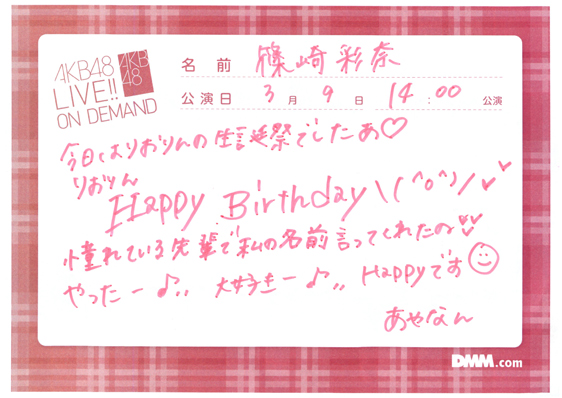 AKB48
LIVE!!
ON DEMAND
AKB
48
名前 篠崎彩奈
公演日 3月9日 14:00 公演
今日はりおりんの生誕祭でしたあ♡
りおりん
Happy Birthday \(^o^)/
憧れている先輩で私の名前言ってくれたの
やったー♪,, 大好きー♪,, Happyです
あやなん
DMM.com